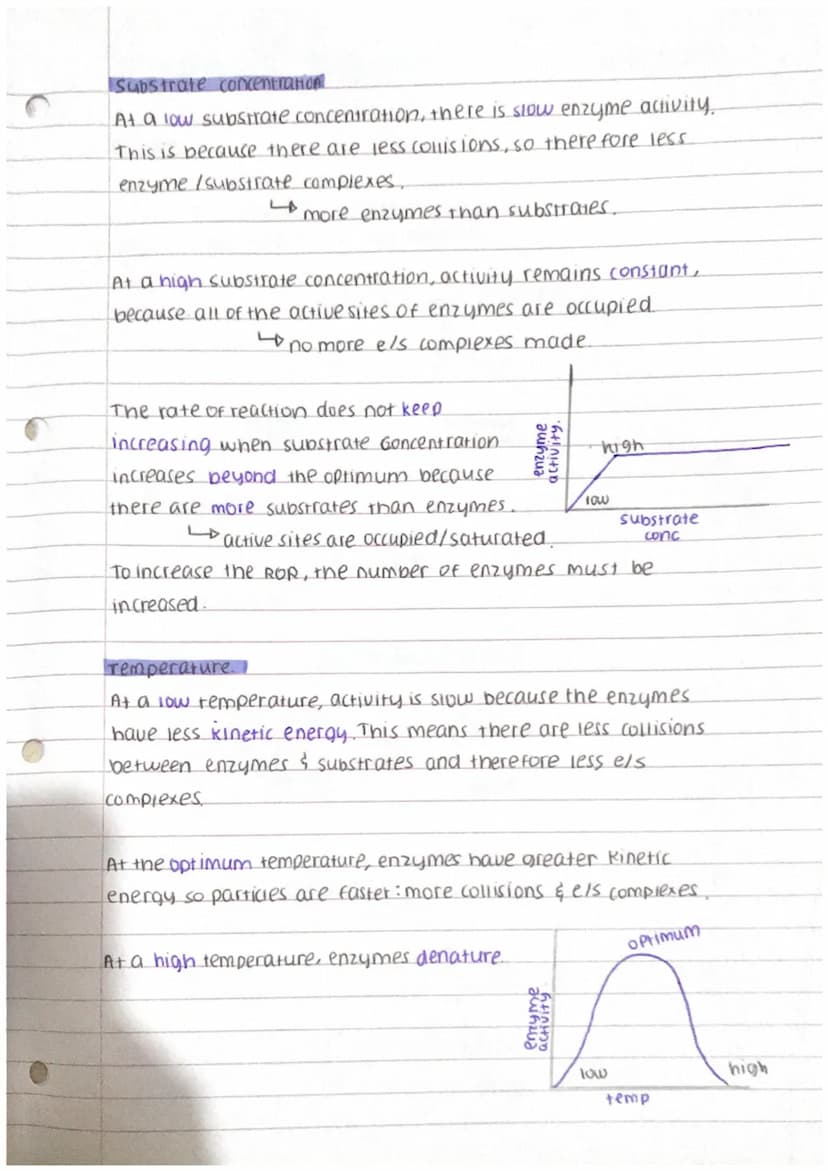 Substrate concentration
At a low substrate concentration, there is slow enzyme activity.
This is because there are less collisions, so therefore less
enzyme/substrate complexes.
↳ more enzymes than substrates.
At a high substrate concentration, activity remains constant,
because all of the active sites of enzymes are occupied
↳ no more e/s complexes made.
The rate of reaction does not keep
increasing when substrate concentration
increases beyond the optimum because
there are more substrates than enzymes.
↳ active sites are occupied/saturated.
enzyme
activity.
high
low
substrate
conc
To increase the ROR, the number of enzymes must be
increased.
Temperature.
At a low temperature, activity is slow because the enzymes
have less kinetic energy. This means there are less collisions
between enzymes & substrates and therefore less e/s
complexes.
At the optimum temperature, enzymes have greater kinetic
energy so particles are faster: more collisions & e/s complexes.
At a high temperature, enzymes denature.
enzyme
activity
optimum
low
high
temp